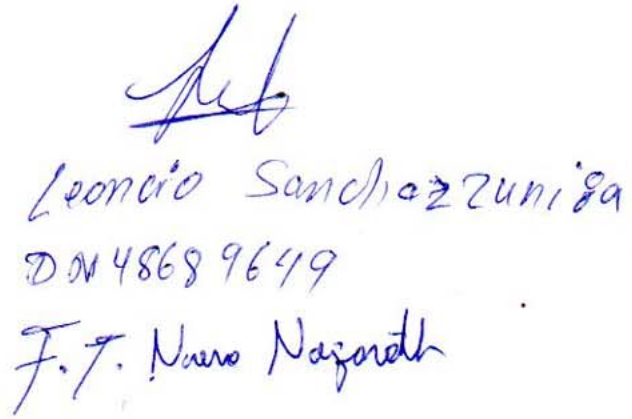 Leoncio Sanchez Zuniga
DNI 48689649
F.T. Nuevo Nazareth